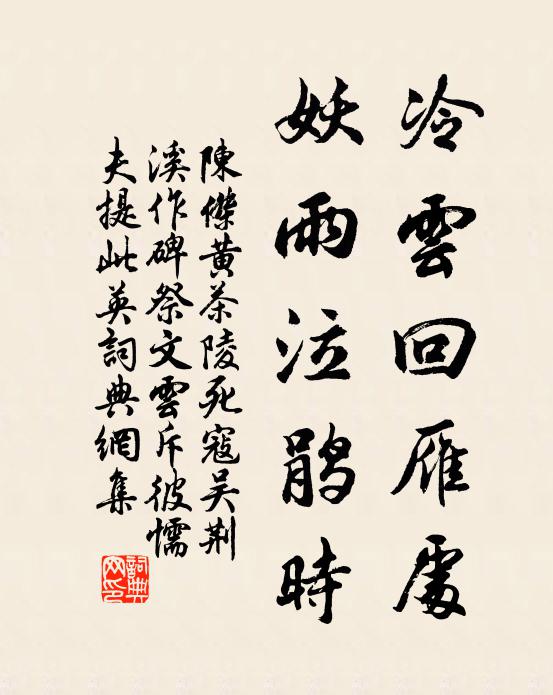 冷雲回雁處
妖雨泣鵑時
陳傑黃茶陵死寇吴荆
溪作碑祭文雲斥彼懦
夫提此英詞典網集
詞典网印